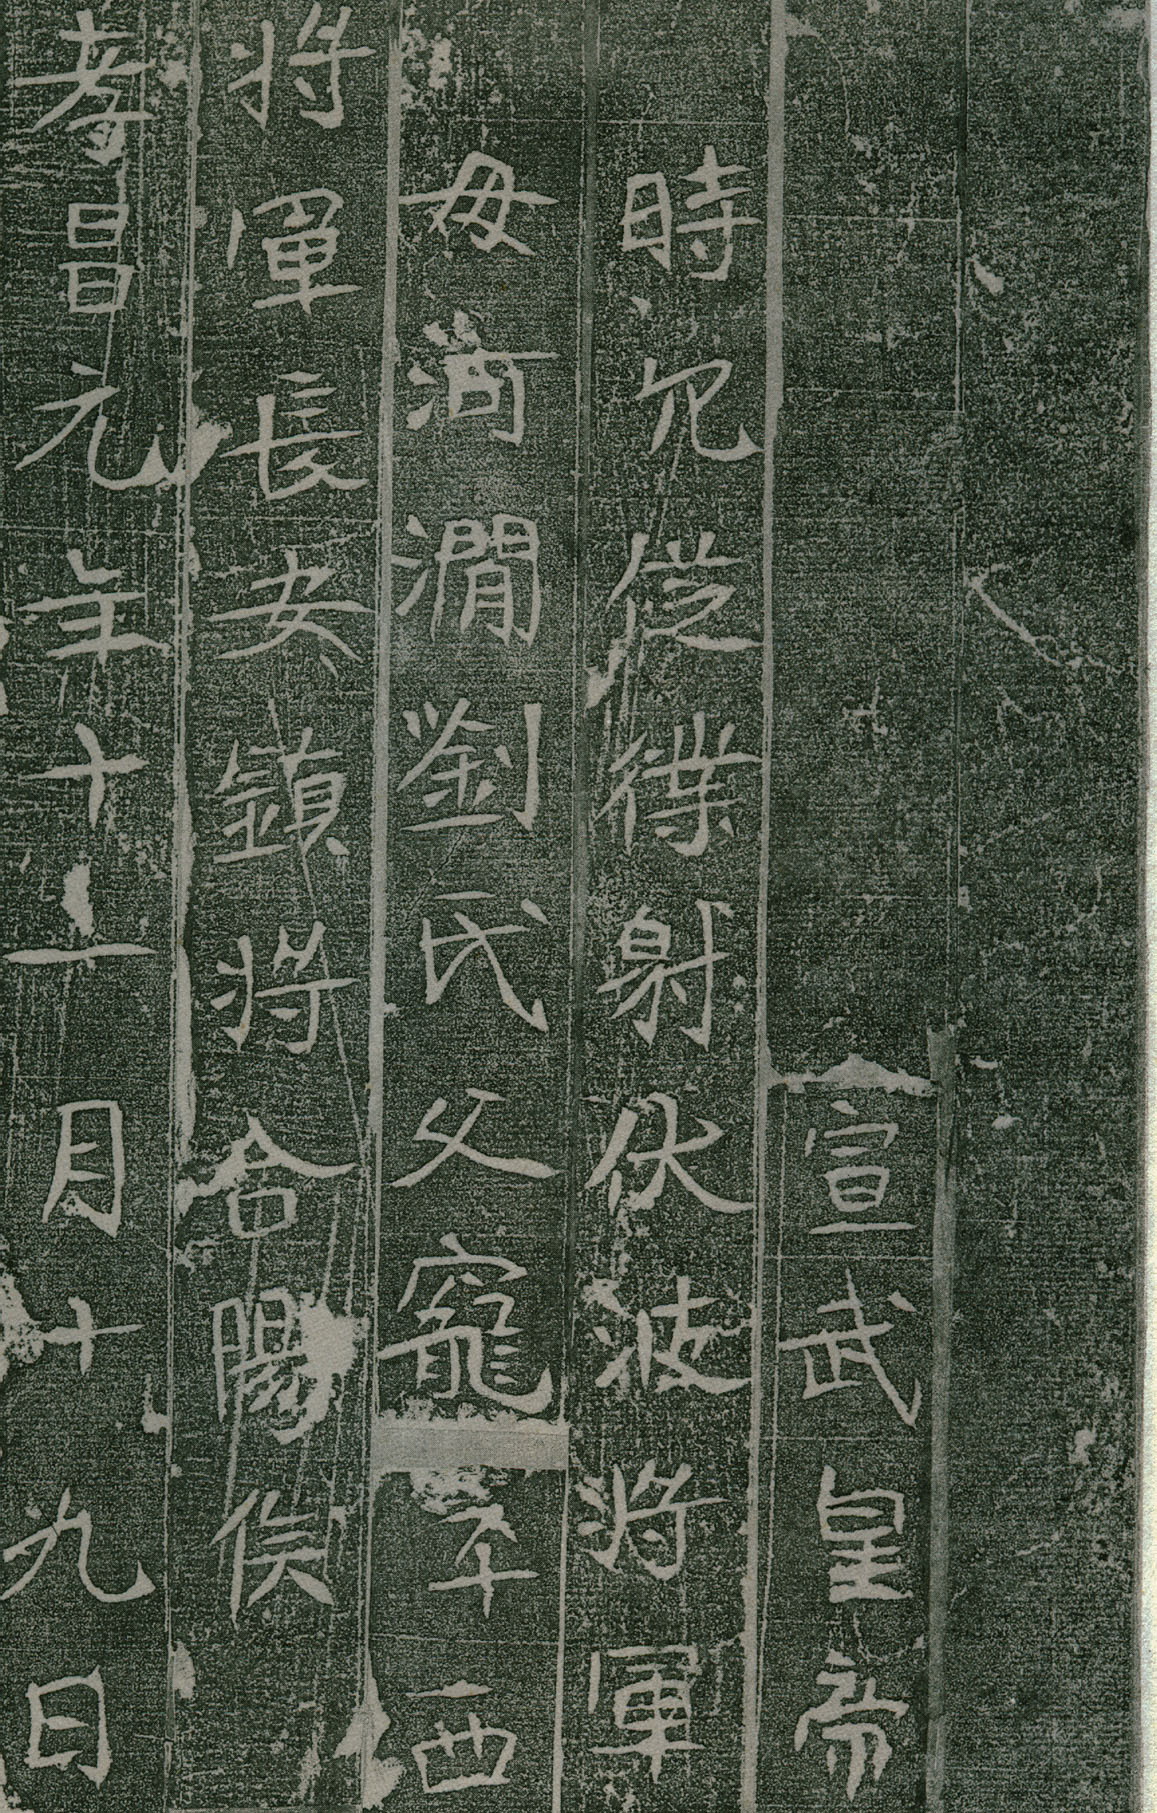 宣武皇帝
時兄從僕射伏波將軍
母河澗劉氏父寵卒西
將軍長安鎮將合陽侯
孝昌元年十一月十九日